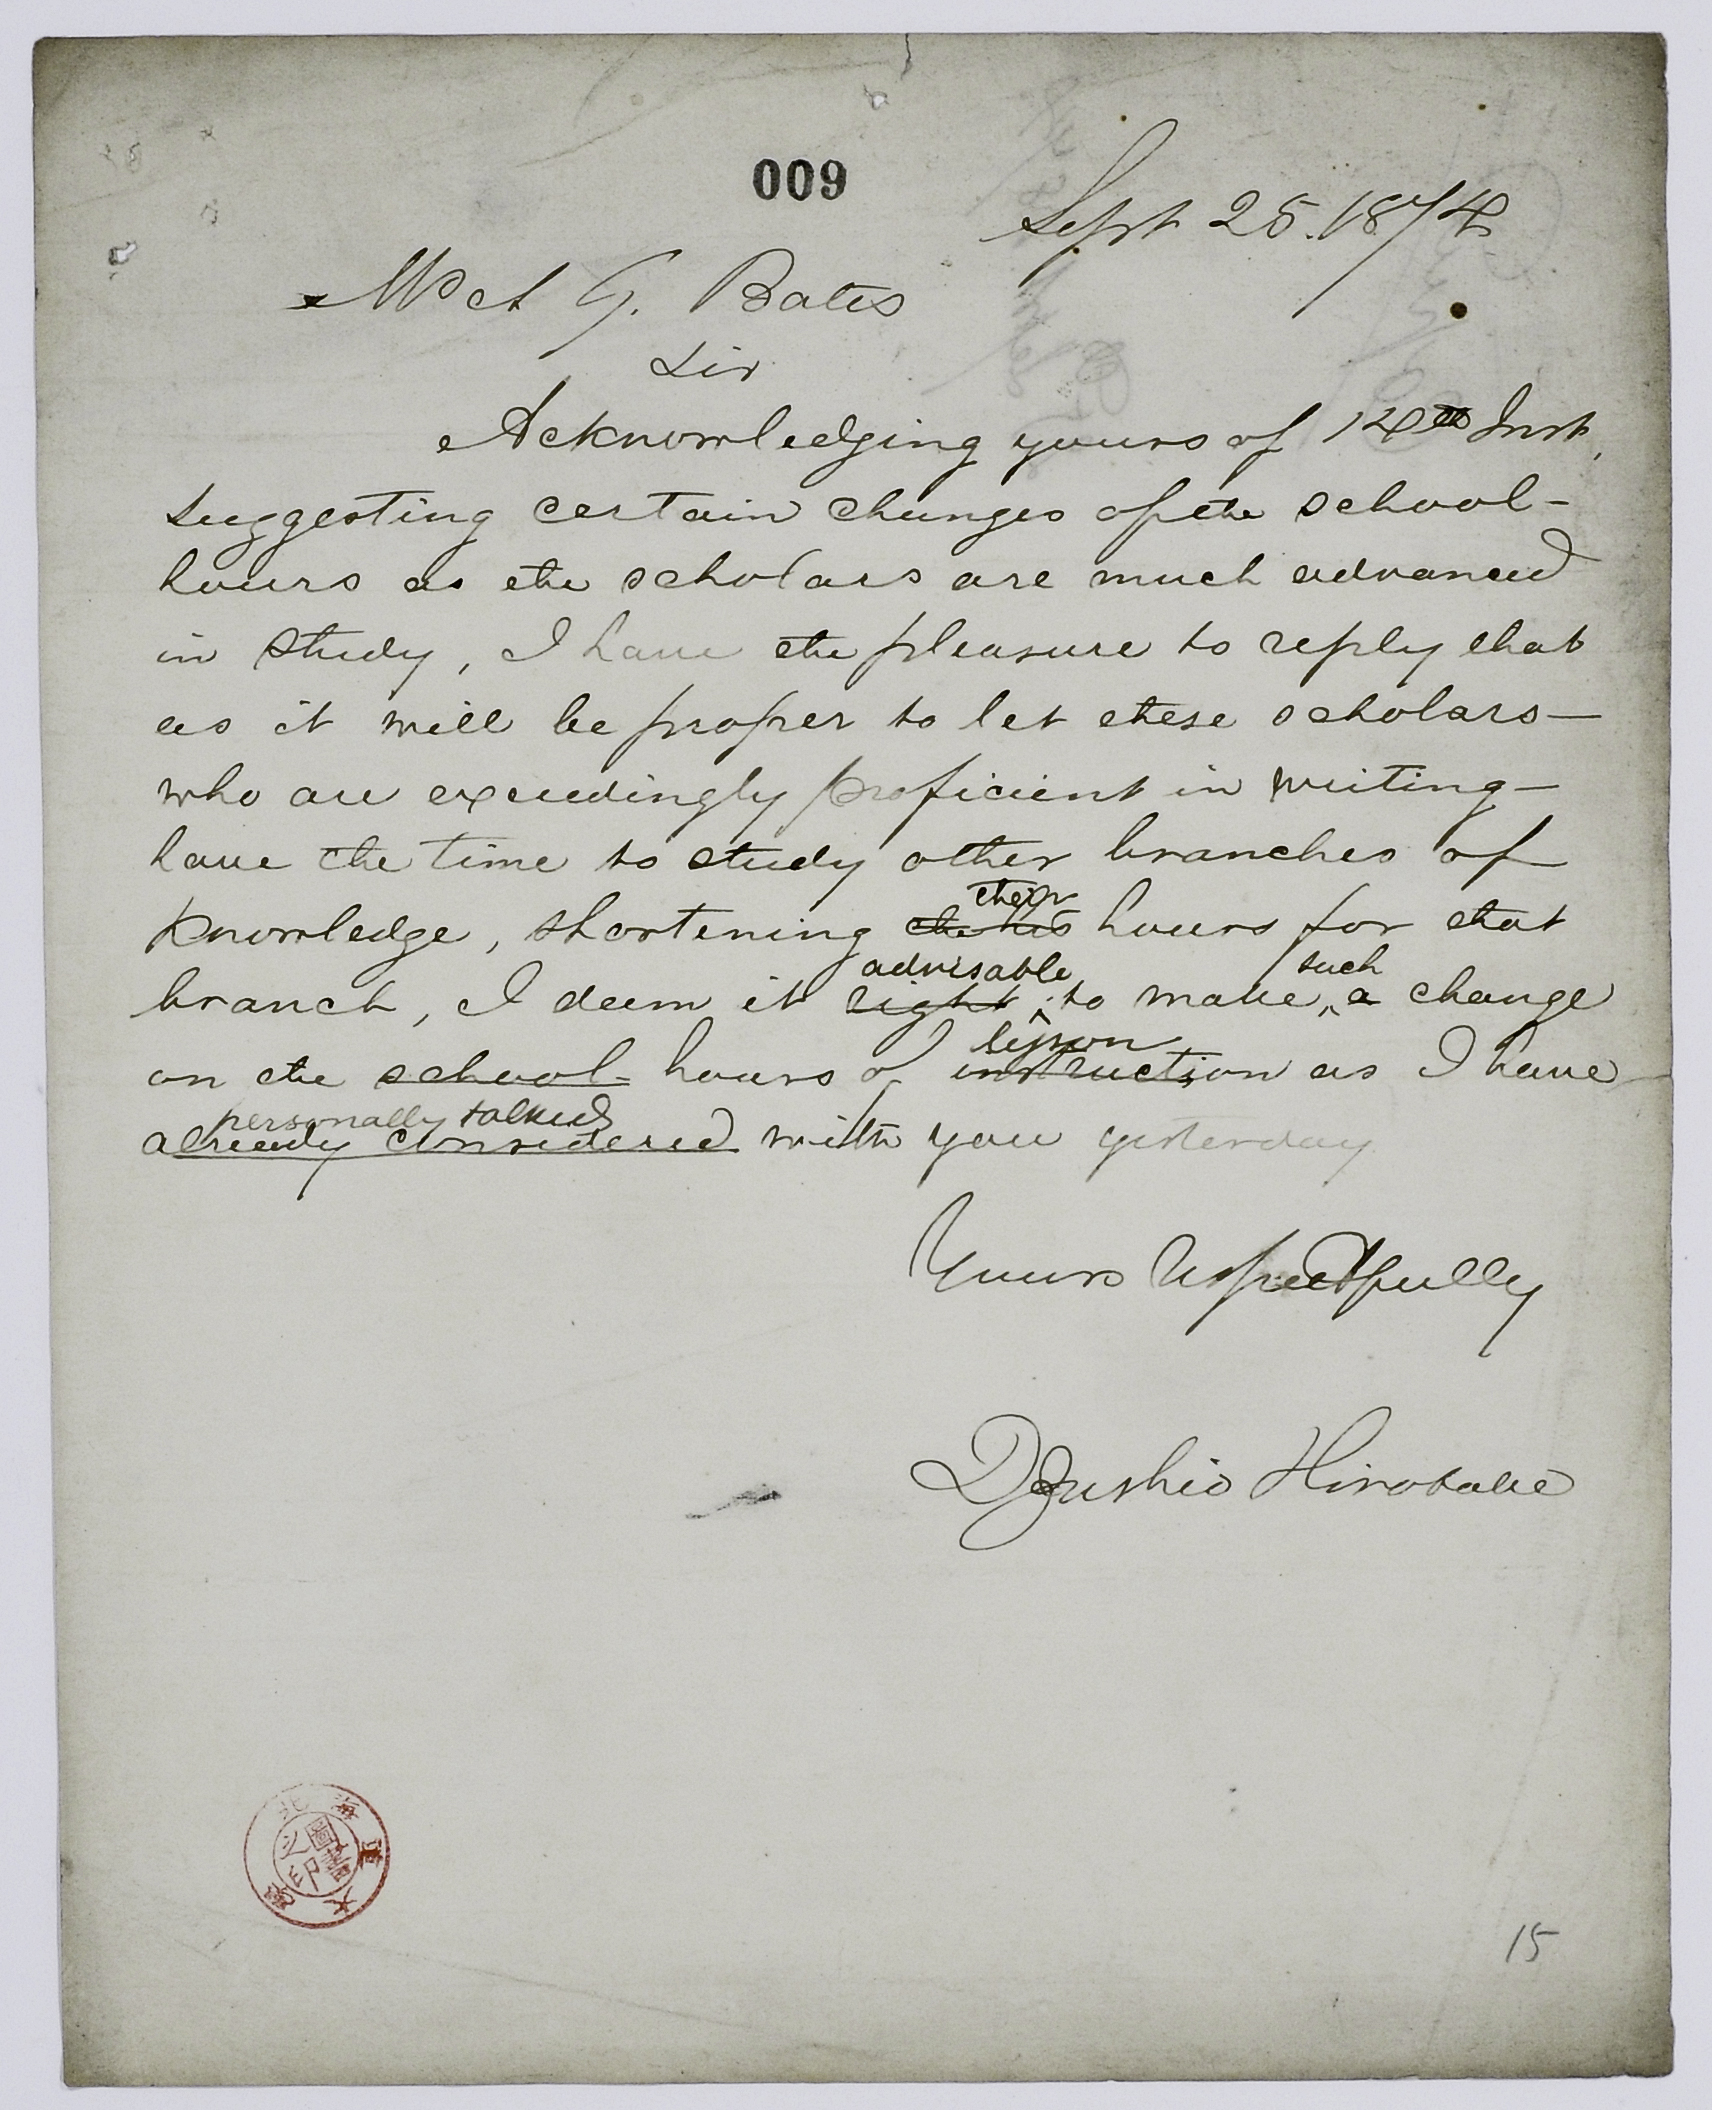 009
Sept 25. 1874
W A G. Bates
Sir
Acknowledging yours of 14th Inst,
suggesting certain changes of the school-
hours as the scholars are much advanced
in study, I have the pleasure to reply that
as it will be proper to let these scholars—
who are exceedingly proficient in writing—
have the time to study other branches of
their
knowledge, shortening hours for that
advisable such
branch, I deem it right to make a change
lesson
on the school-hours of instruction as I have
personally talked
already considered with you yesterday
Yours respectfully
Dzushio Hirotake
北海道大學
圖書之印
15